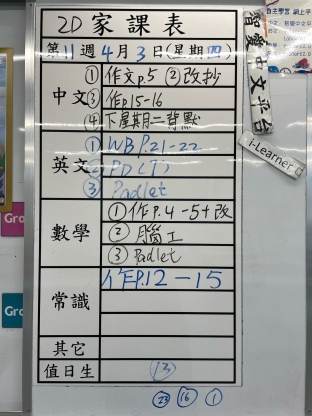 2D 家課表
第11週4月3日(星期四)
中文
① 作文p.5 ② 改抄
③ 作p15-16
④ 下星期二背默
英文
① WB P.21-22
② PD(T)
③ Padlet
數學
① 作P.4-5+改
② 腦工
③ Padlet
常識
作P.12-15
其它
值日生
13
23 16 1
智愛中文平台
i-Learner
自主學習 網上平
Gro
Gro